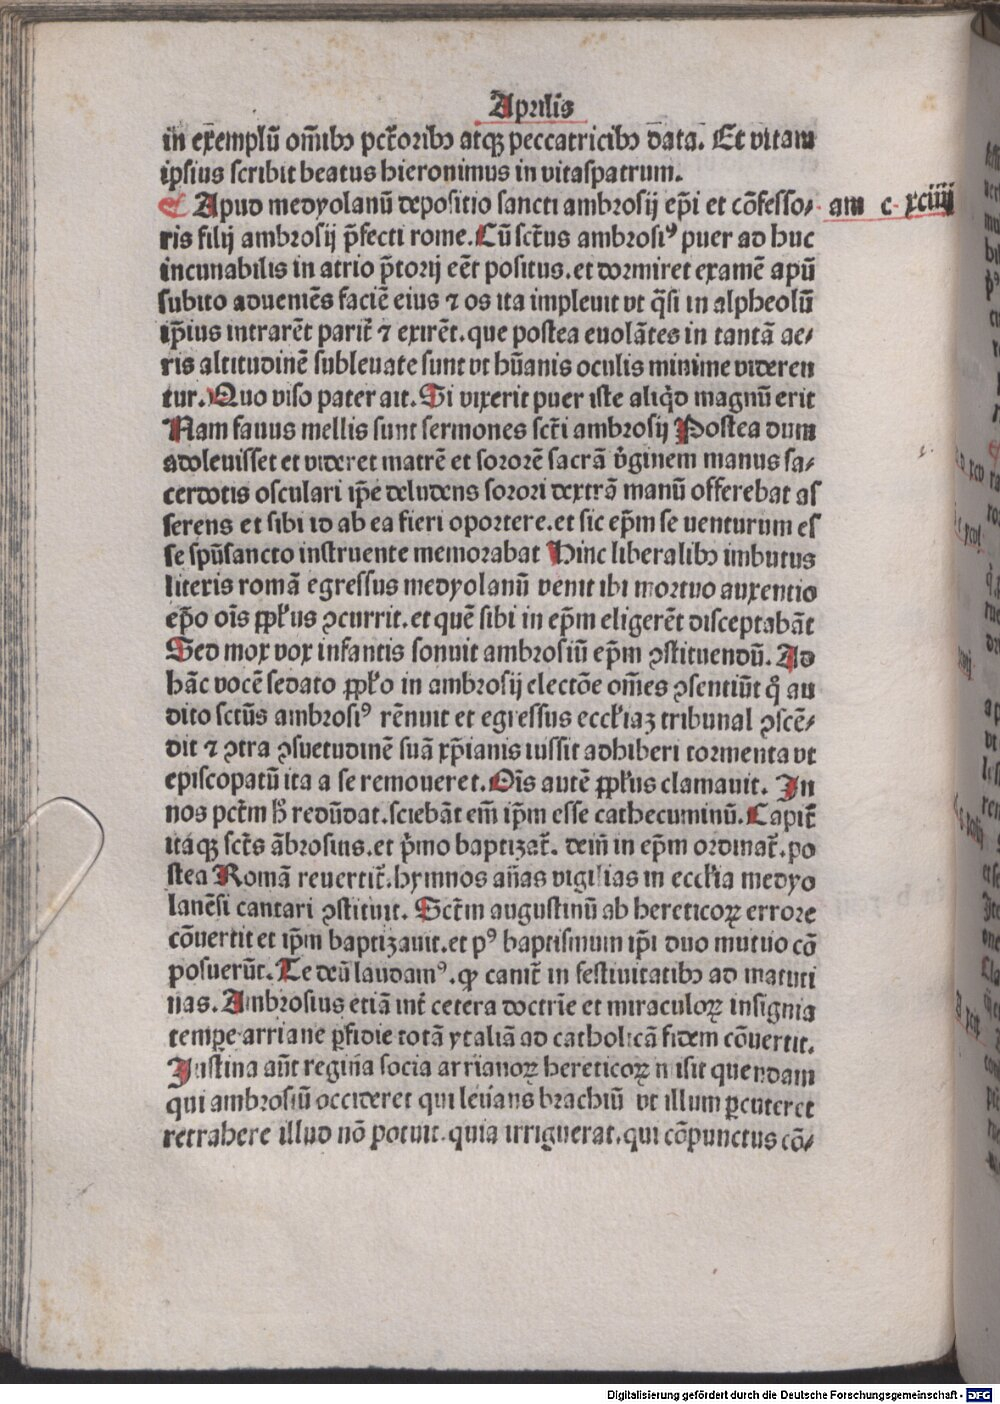 Aprilis
in exẽmplũ om̃ibꝫ pctõribꝫ atqꝫ peccatricibꝫ data. Et vitam
ipsius scribit beatus hieronimus in vitaspatrum.
¶ Apud medyolanũ depositio sancti ambrosij ep̃i et cõfesso⸗ am c xciiij
ris filij ambrosij p̃fecti rome. Cũ sct̃us ambrosiꝰ puer ad huc
incunabilis in atrio p̃torij eẽt positus. et dormiret examẽ apũ
subito aduẽniẽs faciẽ eius ⁊ os ita impleuit vt q̃si in alpheolũ
ip̃ius intrarẽt parit̃ ⁊ exirẽt. que postea euolãtes in tantã ae⸗
ris altitudinẽ subleuate sunt vt hũanis oculis minime videren
tur. Quo viso pater ait. Si vixerit puer iste aliqd̃ magnũ erit
Nam fauus mellis sunt sermones sct̃i ambrosij Postea dum
adoleuisset et videret matrẽ et sororẽ sacrã v̓ginem manus sa⸗
cerdotis osculari ip̃e deludens sorori dextrã manũ offerebat as
serens et sibi id ab ea fieri oportere. et sic ep̃m se uenturum es
se spũsancto instruente memorabat Hinc liberalibꝫ imbutus
literis romã egressus medyolanũ venit ibi mortuo auxentio
ep̃o oĩs ꝓpl̃us ꝯcurrit. et quẽ sibi in ep̃m eligerẽt disceptabãt
Sed mox vox infantis sonuit ambrosiũ ep̃m ꝯstituendũ. Ad
hãc vocẽ sedato ꝓpl̃o in ambrosij electõe om̃es ꝯsentiũt q̃ au
dito sctũs ambrosiꝰ rẽnuit et egressus eccl̃iaꝫ tribunal ꝯscẽ⸗
dit ⁊ ꝯtra ꝯsuetudinẽ suã xp̃ianis iussit adhiberi tormenta vt
episcopatũ ita a se remoueret. Oĩs autẽ ꝓpl̃us clamauit. In
nos pct̃m h̃ redũdat. sciebãt em̃ ip̃m esse cathecuminũ. Capit̃
itaqꝫ sct̃s ãbrosius. et p̃mo baptizat̃. dein̄ in ep̃m ordinat̃. po
stea Romã reuertit̃. hymnos añas vigilias in eccl̃ia medyo
lanẽsi cantari ꝯstituit. Sct̃m augustinũ ab hereticoꝝ errore
cõuertit et ip̃m baptizauit. et pꝰ baptismum ip̃i duo mutuo cõ
posuerũt. Te deũ laudamꝰ. qꝫ canit̃ in festiuitatibꝫ ad matuti
nas. Ambrosius etiã int̃ cetera doctrĩe et miraculoꝝ insignia
tempe arriane ꝑfidie totã ytaliã ad catholicã fidem cõuertit.
Justina aũt regina socia arrianoꝝ hereticoꝝ misit quendam
qui ambrosiũ occideret qui leuans brachiũ vt illum ꝑcuteret
retrahere illud nõ potuit. quia irriguerat. qui cõpunctus cõ⸗
Digitalisierung gefördert durch die Deutsche Forschungsgemeinschaft - DFG